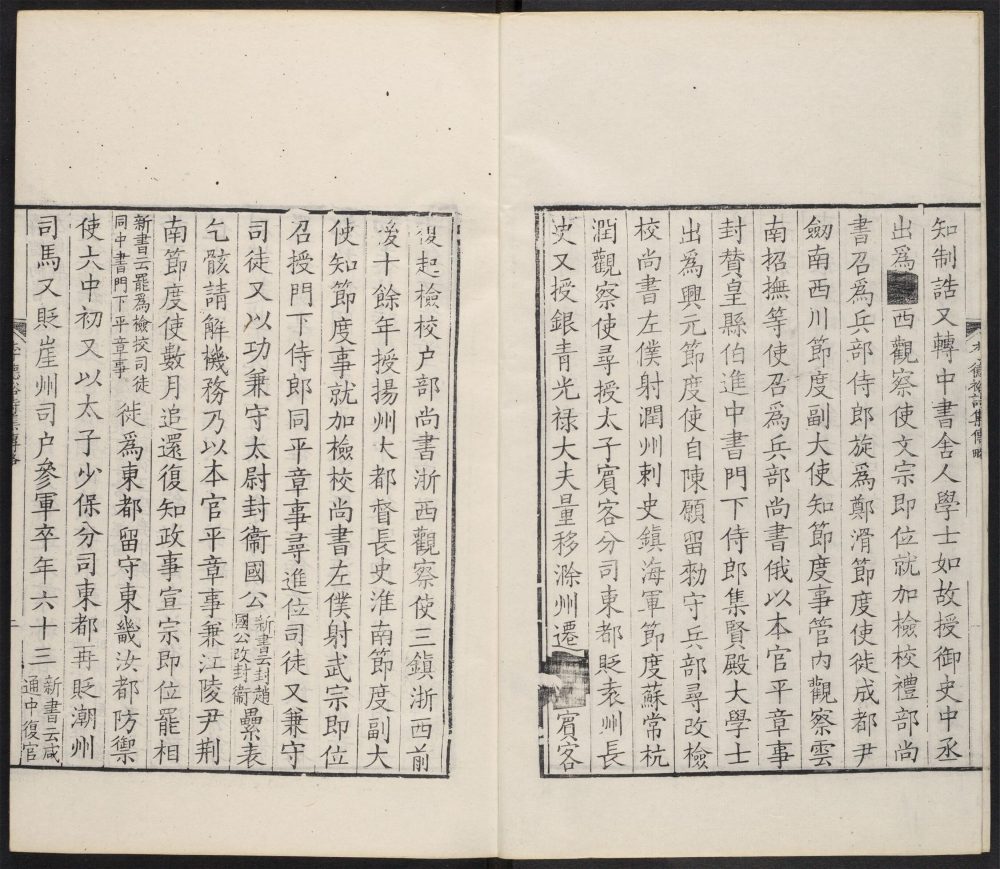 知制誥又轉中書舍人學士如故授御史中丞
出爲西觀察使文宗即位就加檢校禮部尚
書召爲兵部侍郎旋爲鄭滑節度使徙成都尹
劔南西川節度副大使知節度事管内觀察雲
南招撫等使召爲兵部尚書俄以本官平章事
封賛皇縣伯進中書門下侍郎集賢殿大學士
出爲興元節度使自陳願留勑守兵部尋改檢
校尚書左僕射潤州刺史鎮海軍節度蘇常杭
潤觀察使尋授太子賓客分司東都貶袁州長
史又授銀青光禄大夫量移滁州遷賓客
復起檢校户部尚書浙西觀察使三鎮浙西前
後十餘年授揚州大都督長史淮南節度副大
使知節度事就加檢校尚書左僕射武宗即位
召授門下侍郎同平章事尋進位司徒又兼守
司徒又以功兼守太尉封衞國公新書云封趙國公改封衞累表
乞骸請解機務乃以本官平章事兼江陵尹荆
南節度使數月追還復知政事宣宗即位罷相
新書云罷爲檢挍司徒同中書門下平章事徙爲東都留守東畿汝都防禦
使大中初又以太子少保分司東都再貶潮州
司馬又貶崖州司户參軍卒年六十三新書云咸通中復官